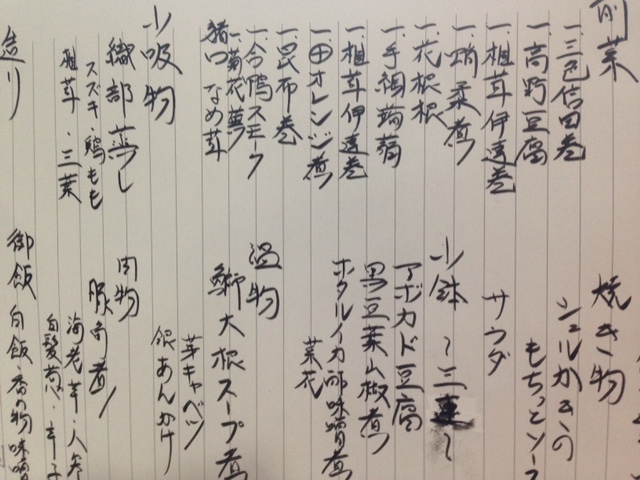 前菜
一.三色信田巻
一.高野豆腐
一.椎茸伊達巻
一.蛸柔煮
一.手綱蒟蒻
一.椎茸伊達巻
オレンジ煮
一.昆布巻
一.合鴨スモーク
一.菊花蕪
猪口 なめ茸
小吸物
織部蒸し
スズキ・鶏もも
椎茸・三葉
造り
焼き物
かきの
もちっとソー
サラダ
小鉢 〜三
アボカド豆腐
黒豆葉山椒煮
ホタルイカ 味噌煮
菜花
温物
鰤大根スープ煮
芽キャベツ
銀あんかけ
肉物
豚角煮
海老芋・人参
白髪葱・辛子
御飯 白飯・香の物 味噌